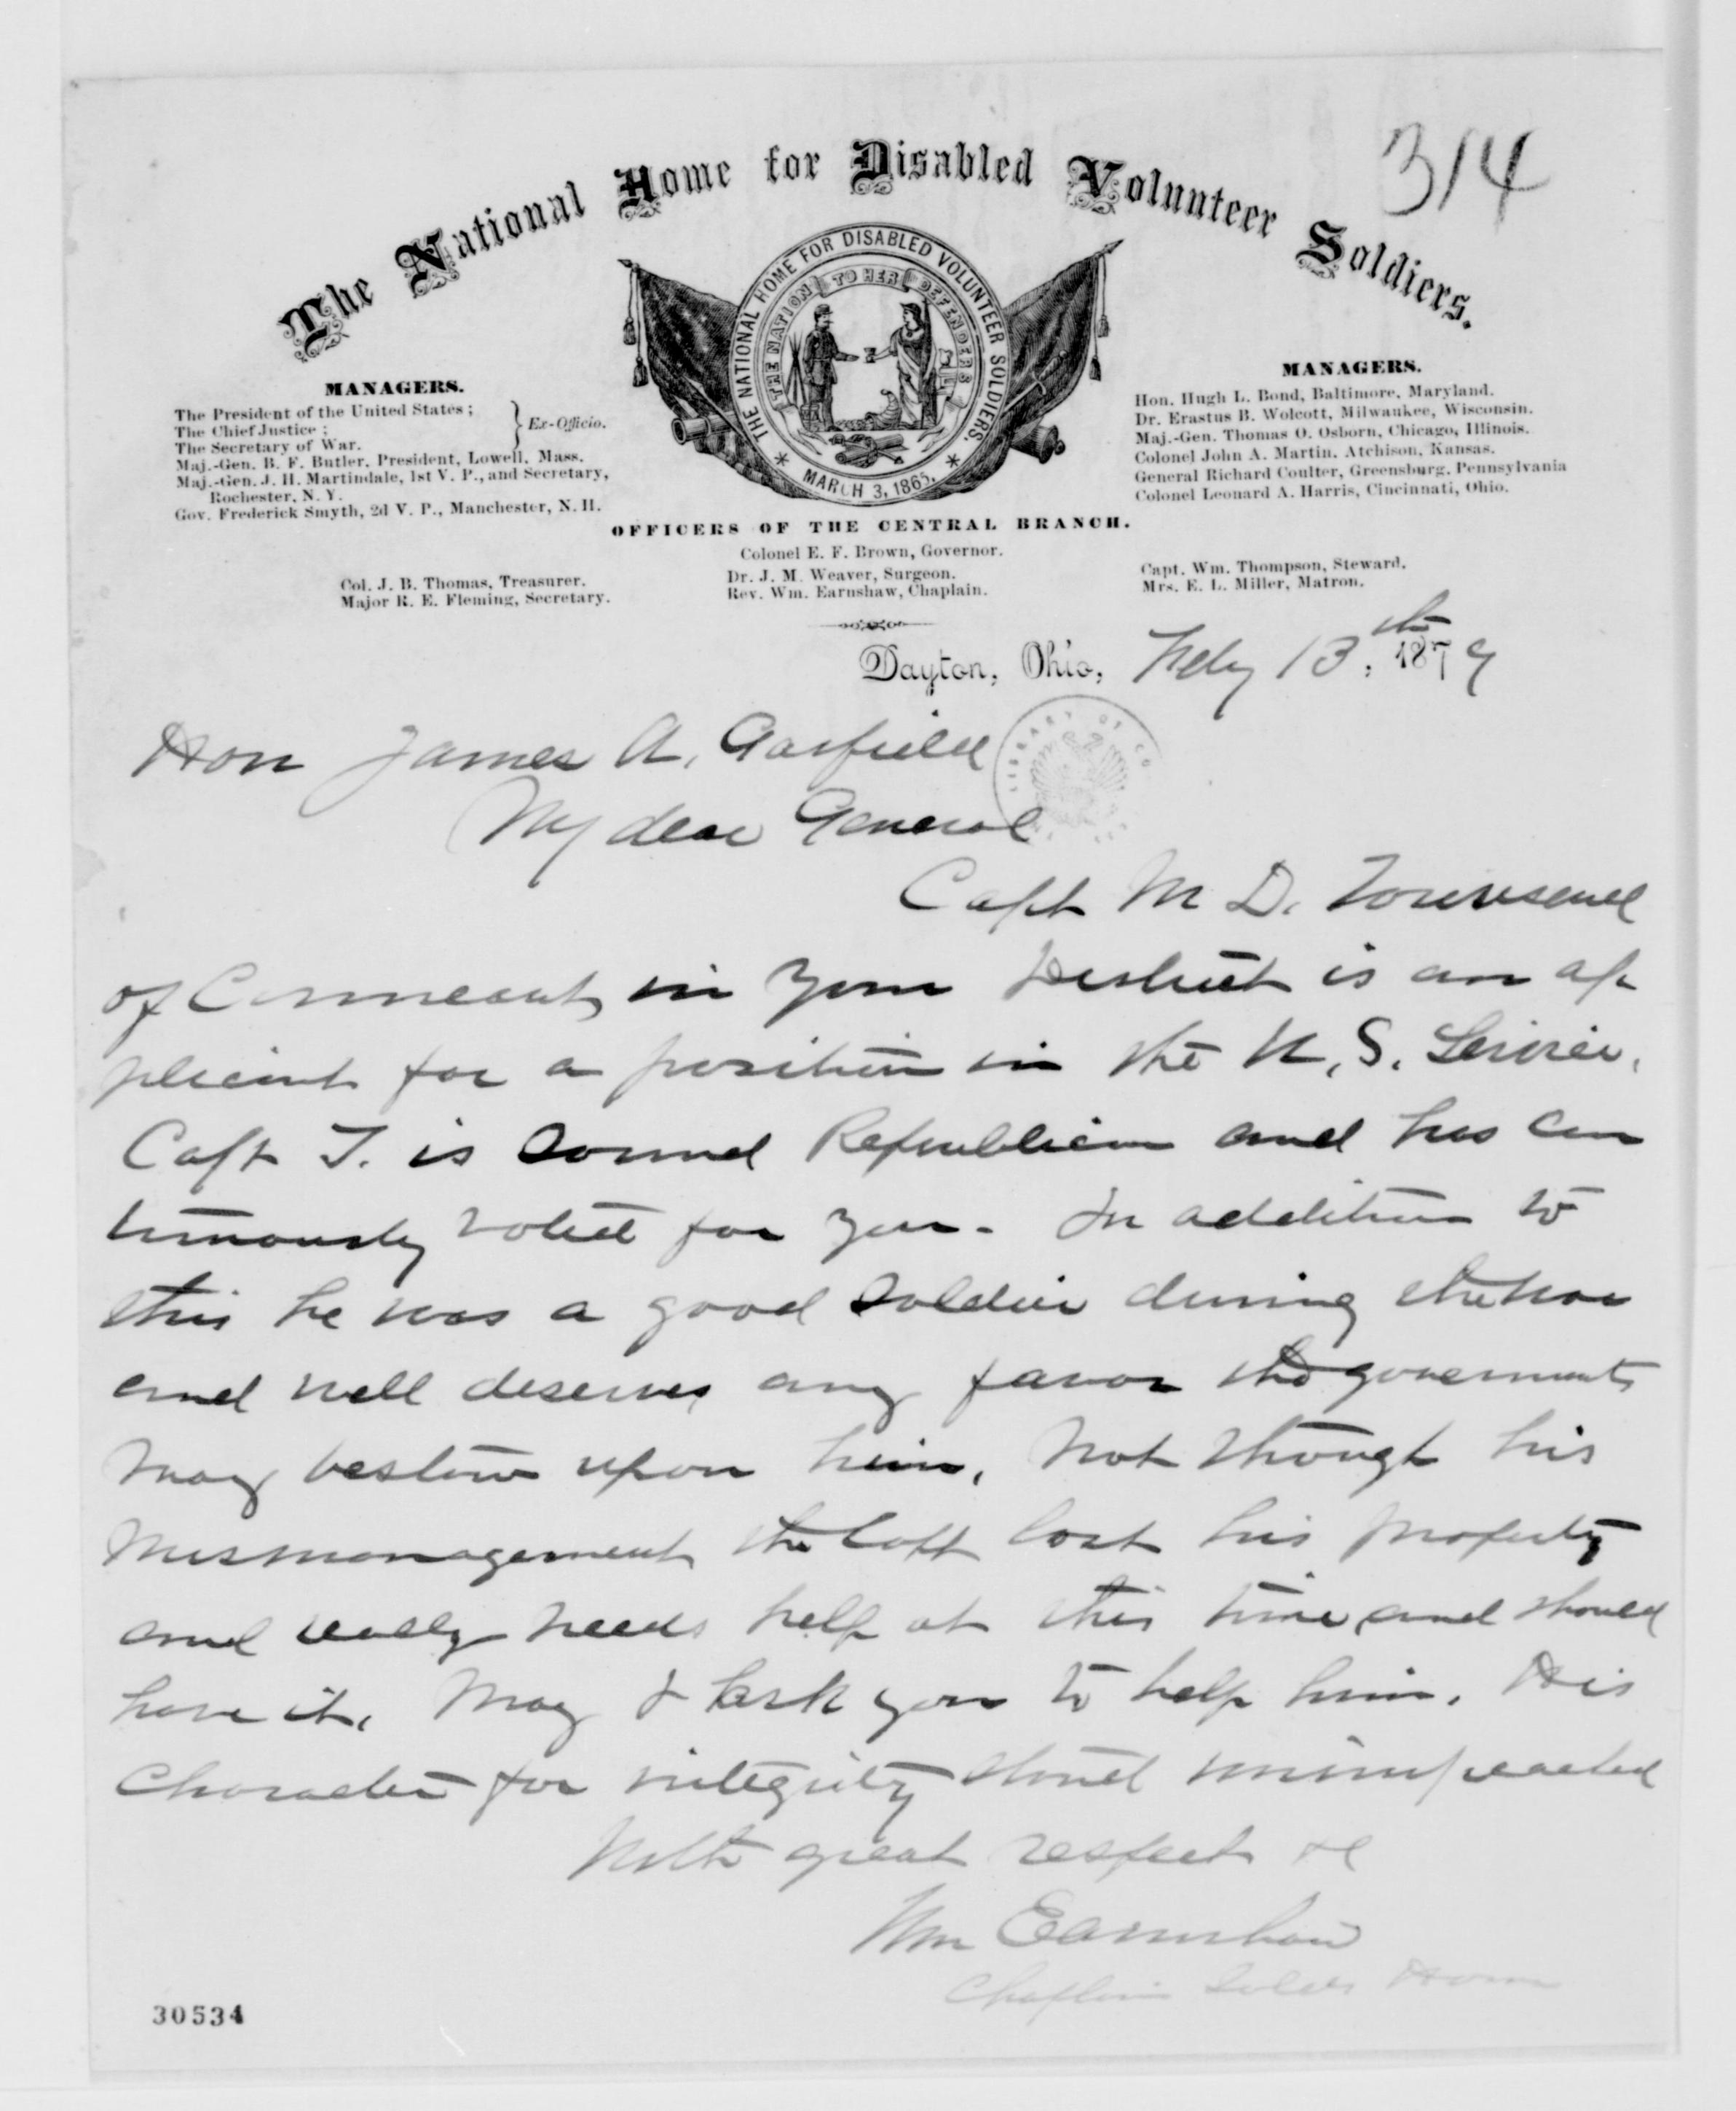 314
The National Home for Disabled Volunteer Soldiers.
THE NATIONAL HOME FOR DISABLED VOLUNTEER SOLDIERS.
THE NATION TO HER DEFENDERS
* MARCH 3, 1865. *
MANAGERS.
The President of the United States;
The Chief Justice;
The Secretary of War.
} Ex-Officio.
Maj.-Gen. B. F. Butler, President, Lowell, Mass.
Maj.-Gen. J. H. Martindale, 1st V. P., and Secretary,
Rochester, N. Y.
Gov. Frederick Smyth, 2d V. P., Manchester, N. H.
MANAGERS.
Hon. Hugh L. Bond, Baltimore, Maryland.
Dr. Erastus B. Wolcott, Milwaukee, Wisconsin.
Maj.-Gen. Thomas O. Osborn, Chicago, Illinois.
Colonel John A. Martin, Atchison, Kansas.
General Richard Coulter, Greensburg, Pennsylvania
Colonel Leonard A. Harris, Cincinnati, Ohio.
OFFICERS OF THE CENTRAL BRANCH.
Colonel E. F. Brown, Governor.
Col. J. B. Thomas, Treasurer.
Major R. E. Fleming, Secretary.
Dr. J. M. Weaver, Surgeon.
Rev. Wm. Earnshaw, Chaplain.
Capt. Wm. Thompson, Steward.
Mrs. E. L. Miller, Matron.
Dayton, Ohio, Feby 13th, 1879
LIBRARY OF CO
Hon James A. Garfield
My dear General
Capt M D. Townsend
of Conneaut, in your District is an ap
plicant for a position in the U. S. Service.
Capt T. is sound Republican and has con
tinuously voted for you - In addition to
this he was a good soldier during the war
and well deserves any favor the government
may bestow upon him. Not though his
mismanagement the Capt lost his property
and really needs help at this time and should
have it. May I ask you to help him. His
character for integrity stand unimpeached
With great respect &c
Wm Earnshaw
Chaplain Soldrs Home
30534